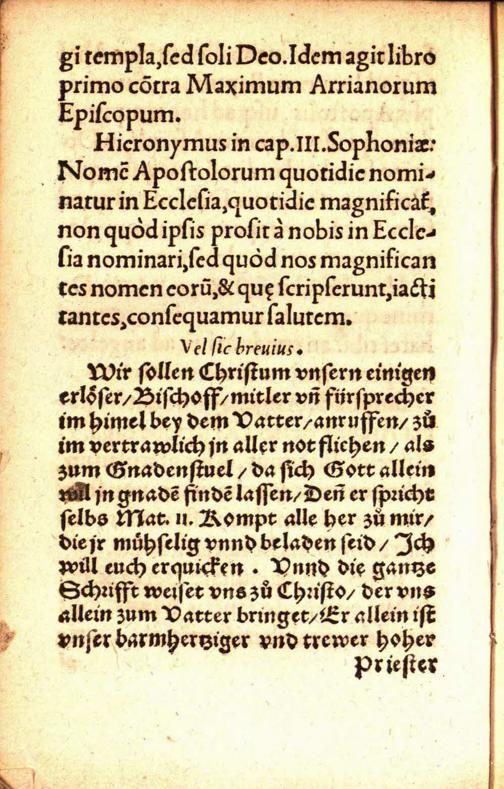 gi templa,ſed ſoli Deo.Idem agit libro
primo cõtra Maximum Arrianorum
Epiſcopum.
Hieronymus in cap.III.Sophoniæ:
Nomẽ Apoſtolorum quotidie nomi-
natur in Eccleſia,quotidie magnificãt,
non quòd ipſis proſit à nobis in Eccle-
ſia nominari,ſed quòd nos magnifican
tes nomen eorũ,& quę ſcripſerunt,iacti
tantes,conſequamur ſalutem.
Vel ſic breuius.
Wir ſollen Chriſtum vnſern einigen
erlöſer/Biſchoff/mitler vñ fürſprecher
im himel bey dem Vatter/anruffen/zů
im vertrawlich jn aller not flichen/als
zum Gnadenſtuel/da ſich Gott allein
will jn gnadẽ findẽ laſſen/Deñ er ſpricht
ſelbs Mat. 11. Kompt alle her zů mir/
die jr mühſelig vnnd beladen ſeid/Ich
will euch erquicken. Vnnd die gantze
Schrifft weiſet vns zů Chriſto/der vns
allein zum Vatter bringet/Er allein iſt
vnſer barmhertziger vnd trewer hoher
Prieſter